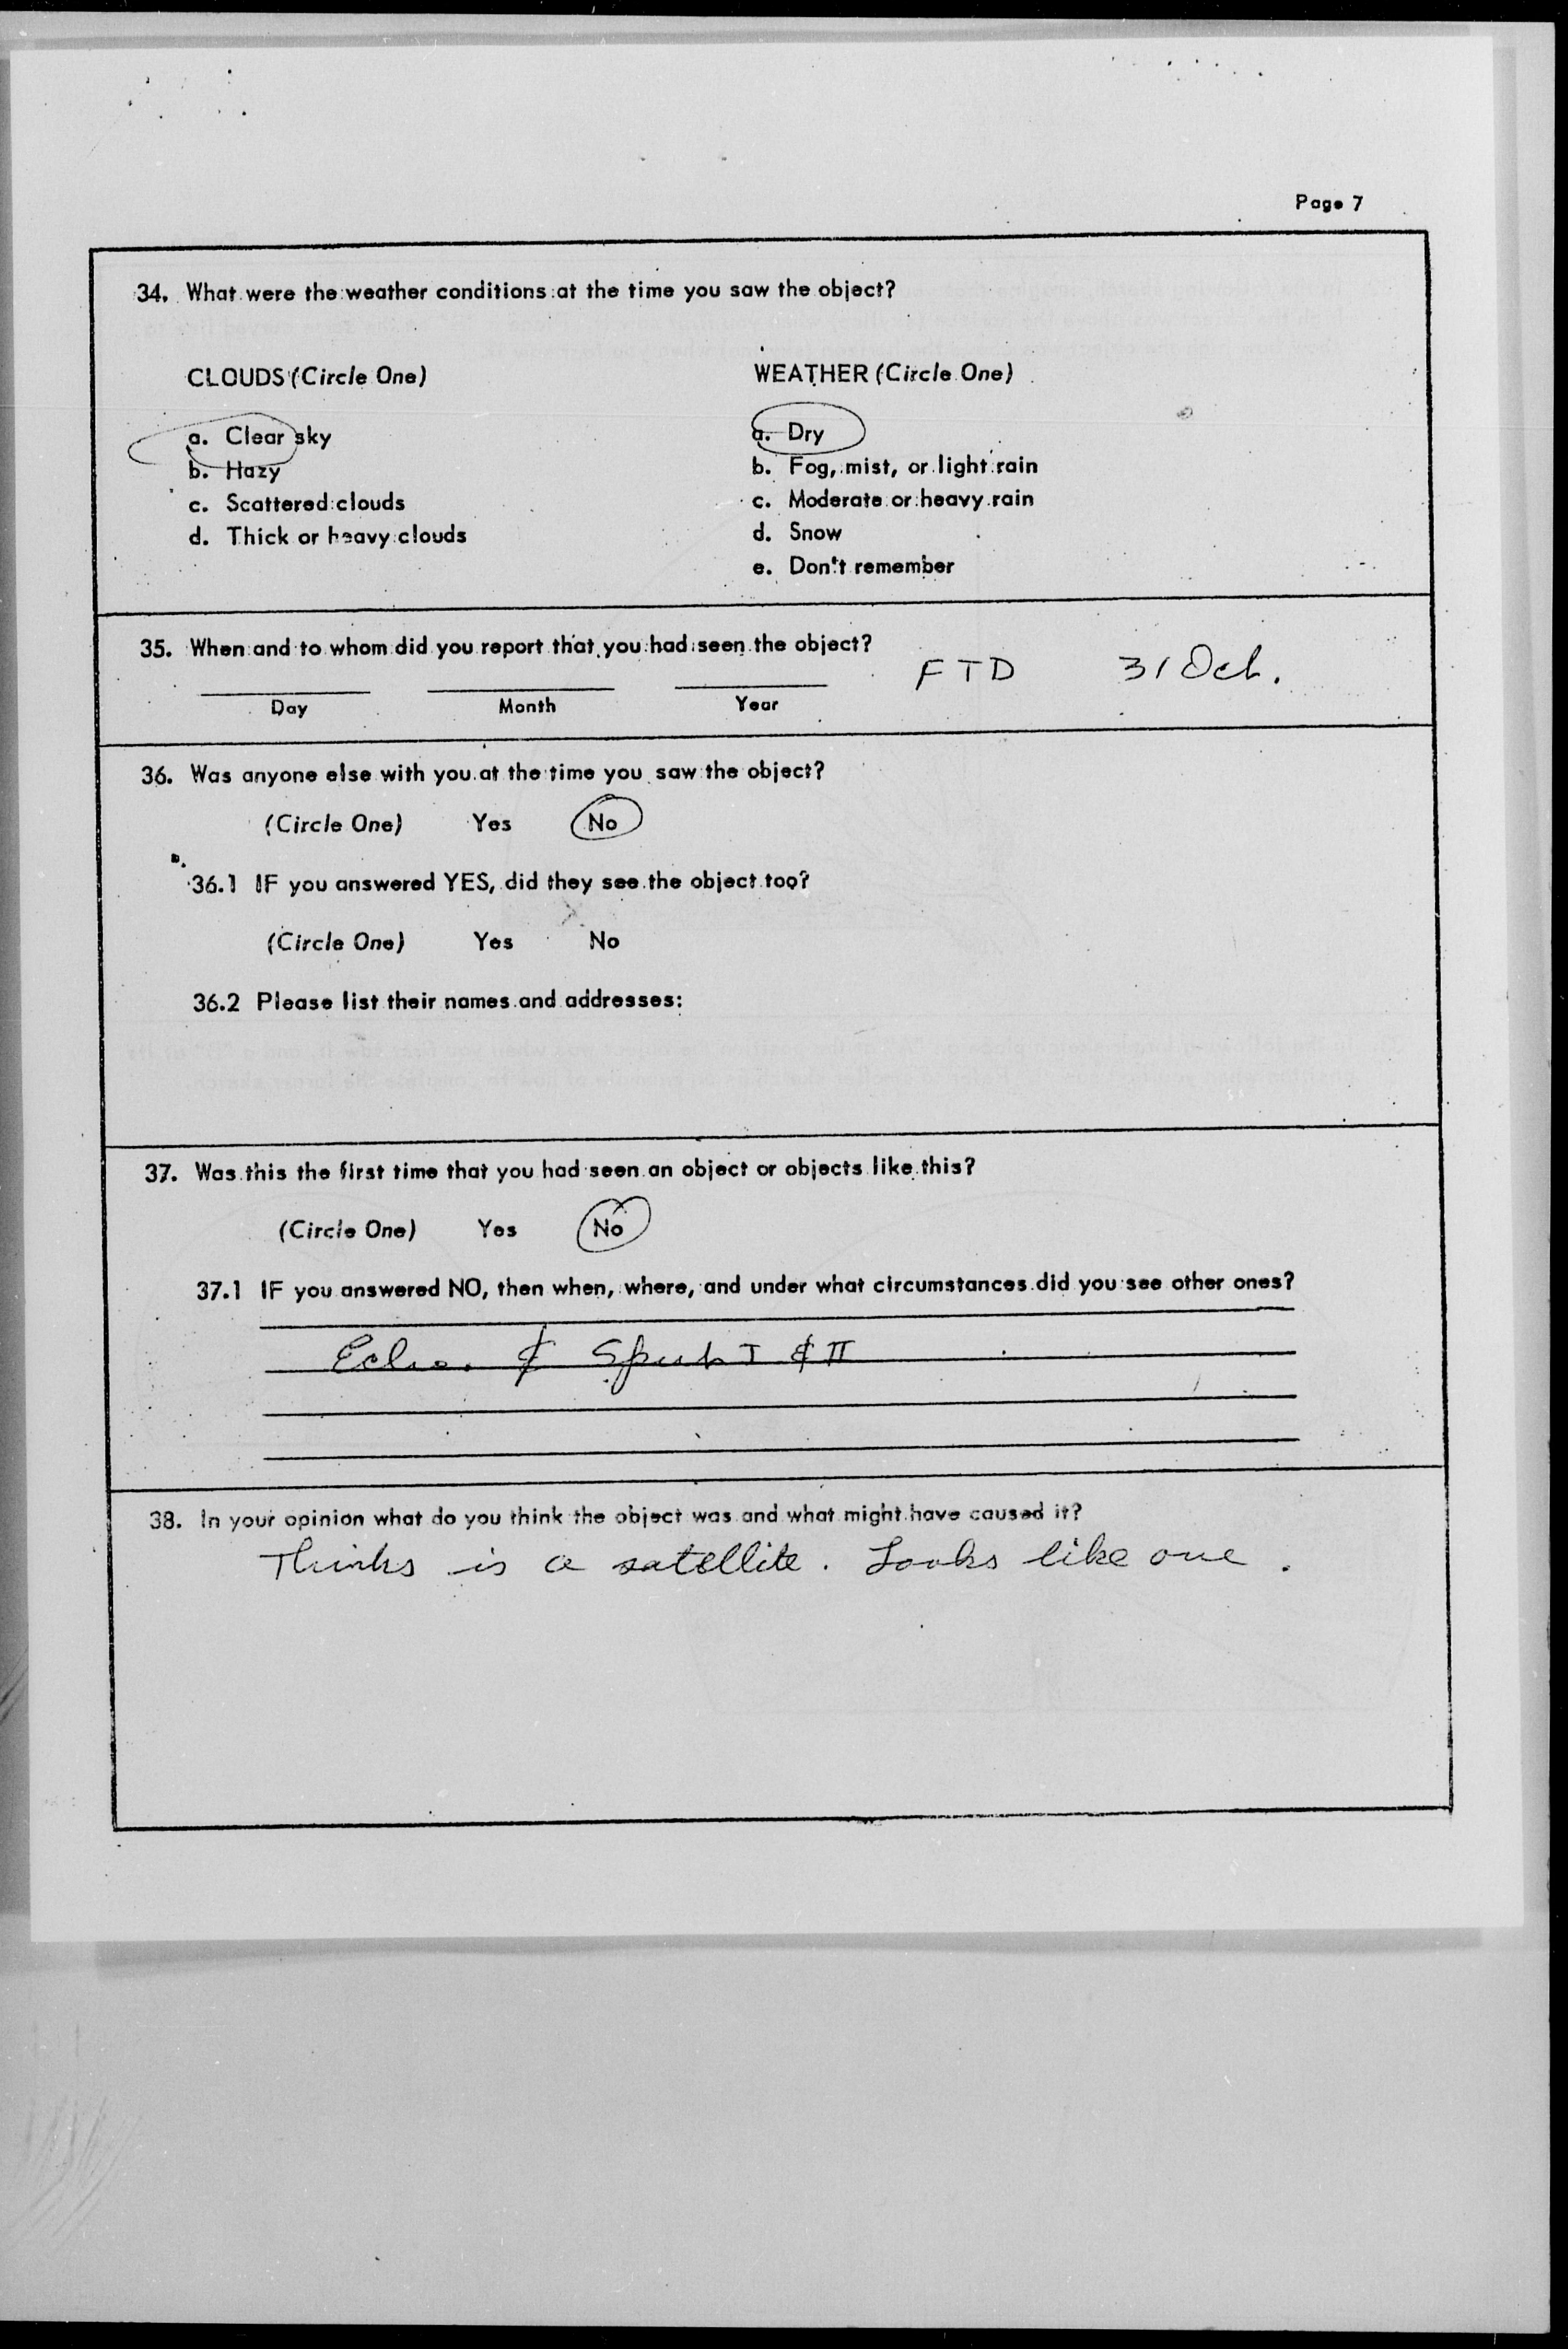 Page 7
34. What were the weather conditions at the time you saw the object?
CLOUDS (Circle One) WEATHER (Circle One)
a. Clear sky a. Dry
b. Hazy b. Fog, mist, or light rain
c. Scattered clouds c. Moderate or heavy rain
d. Thick or heavy clouds d. Snow
e. Don't remember
35. When and to whom did you report that you had seen the object?
FTD 31 Oct.
Day Month Year
36. Was anyone else with you at the time you saw the object?
(Circle One) Yes No
36.1 IF you answered YES, did they see the object too?
(Circle One) Yes No
36.2 Please list their names and addresses:
37. Was this the first time that you had seen an object or objects like this?
(Circle One) Yes No
37.1 IF you answered NO, then when, where, and under what circumstances did you see other ones?
Echo. & I & II
38. In your opinion what do you think the object was and what might have caused it?
Thinks is a satellite. Looks like one.